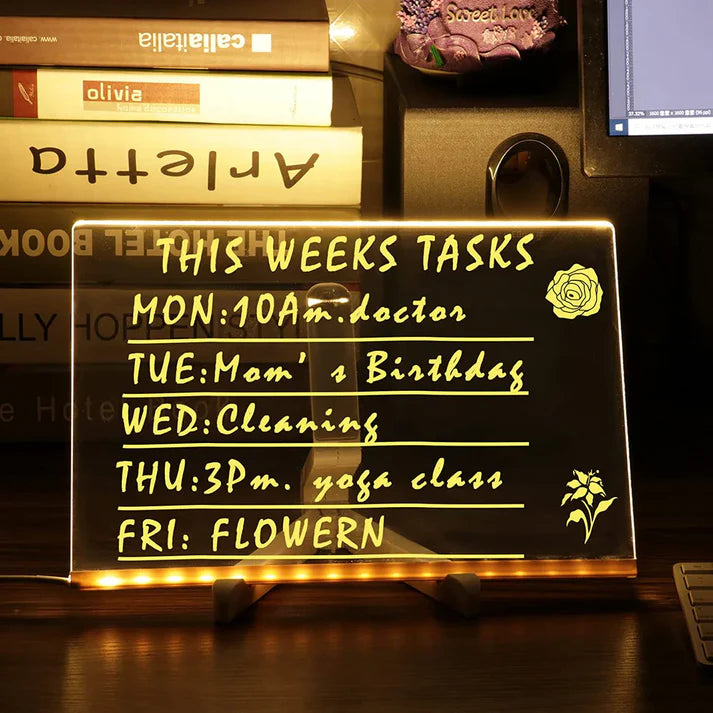 www.
caliaitalia
olivia
home decoration
Arletta
THE HOTEL BOOK
THIS WEEKS TASKS
MON:10Am.doctor
TUE:Mom's Birthdag
WED:Cleaning
THU:3Pm. yoga class
FRI: FLOWERN
Sweet Love